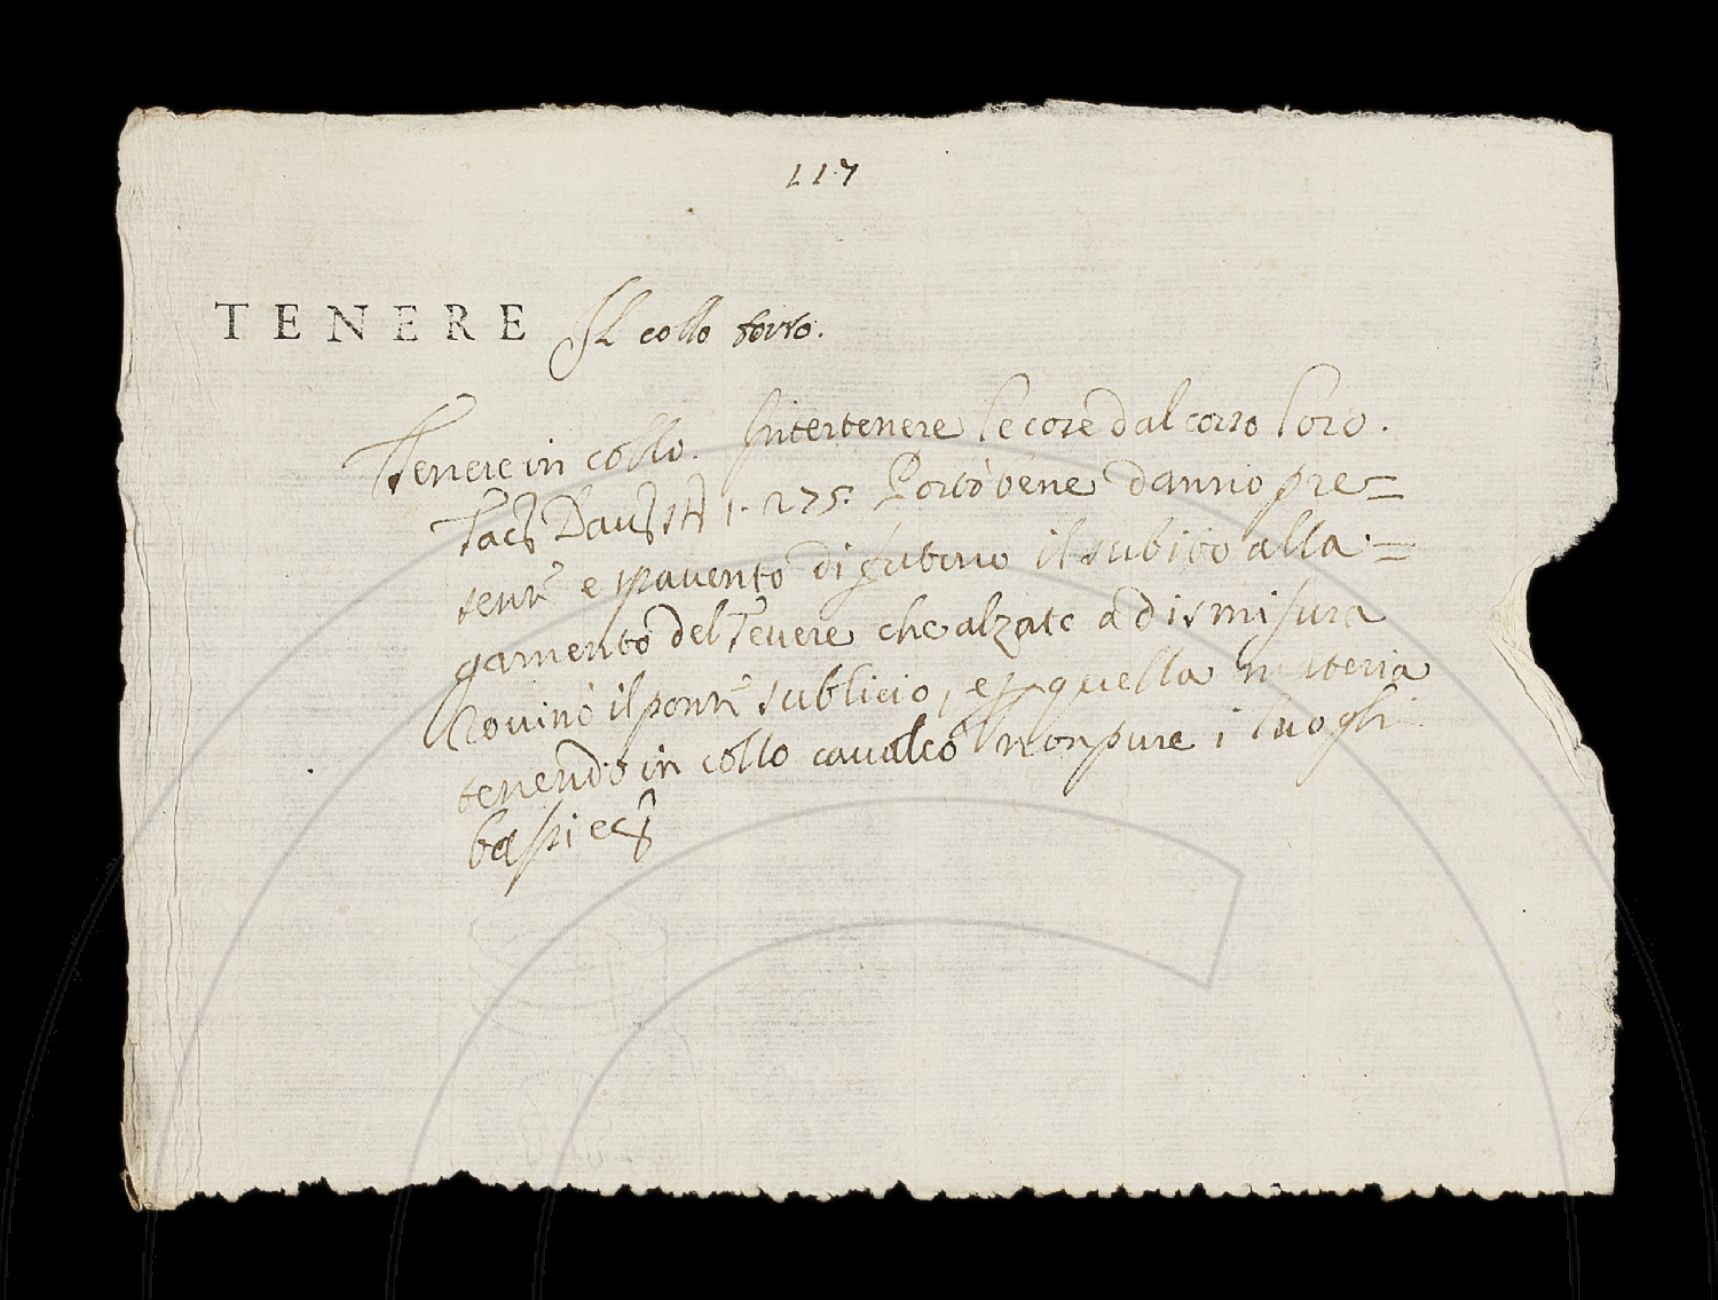 117
TENERE Il collo torto.
Tenere in collo. Intertenere le cose dal corso loro.
Tac. Dav. St. 1. 275. Portò bene danno pre=
sente e spavento di futuro il subito alla=
gamento del Tevere che alzato a dismisura
rovinò il ponte sublicio, e quella materia
tenendo in collo cavalcò non pure i luoghi
bassi ec.